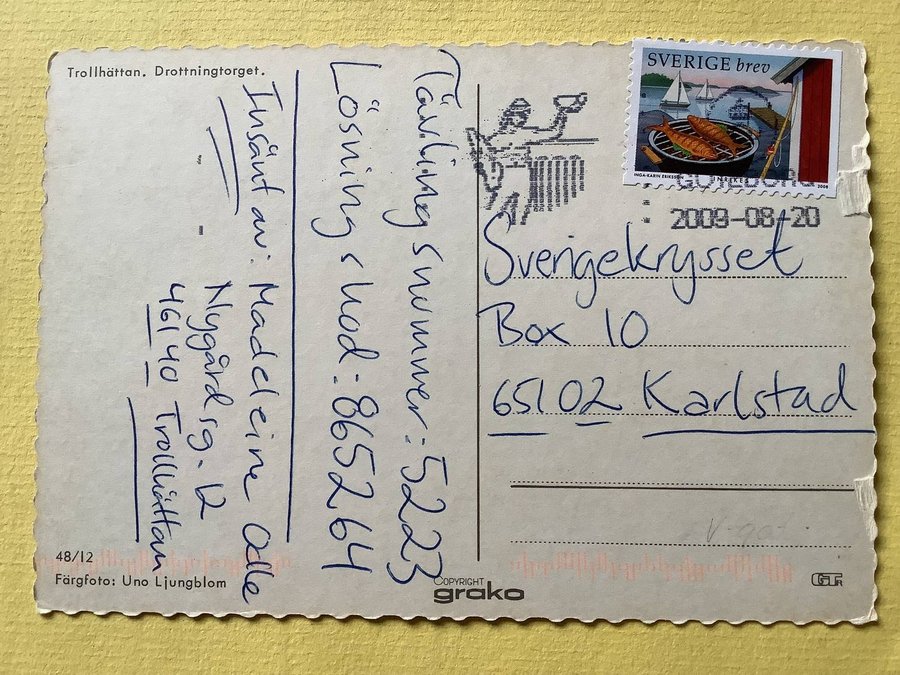 Trollhättan. Drottningtorget.
Tävlingsnummer: 5223
Lösningskod: 865264
Insänt av: Madeleine Odlle
Nygårdsg. 12
46140 Trollhättan
48/12
Färgfoto: Uno Ljungblom
COPYRIGHT
grako
SVERIGE brev
INGA-KARIN ERIKSSON
2008
GÖTEBORG
2009-08-20
Sverigekrysset
Box 10
65102 Karlstad